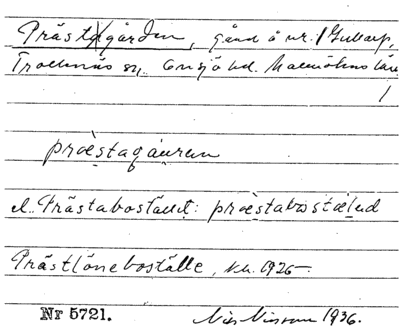 Prästgården, gård å nr. 1 Gullarp,
Trollenäs sn. Onsjö hd. Malmöhus län
1
præstagáuren
el. Prästabostället: præstabostæled
Prästlöneboställe, kk. 1925
Nr 5721. Nils Nilsson 1936.